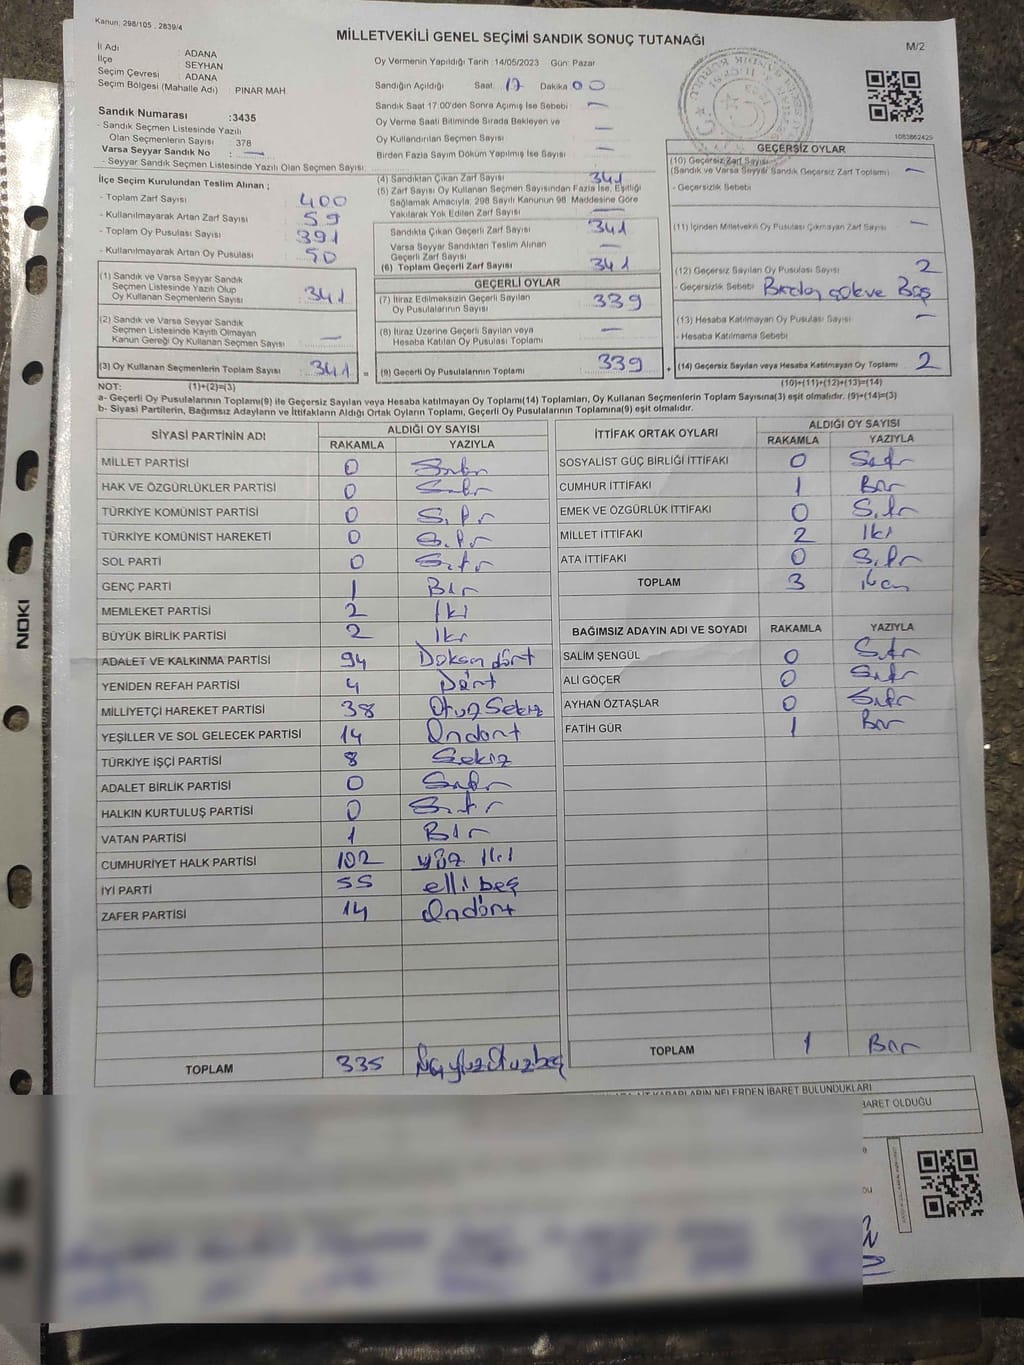 Kanun: 298/105 , 2839/4
MİLLETVEKİLİ GENEL SEÇİMİ SANDIK SONUÇ TUTANAĞI
M/2
İl Adı : ADANA
İlçe : SEYHAN
Seçim Çevresi : ADANA
Seçim Bölgesi (Mahalle Adı) : PINAR MAH
Oy Vermenin Yapıldığı Tarih :14/05/2023 Gün: Pazar
Sandığın Açıldığı Saat: 17 Dakika 00
Sandık Saat 17:00'den Sonra Açımış İse Sebebi : —
Oy Verme Saati Bitiminde Sırada Bekleyen ve
Oy Kullandırılan Seçmen Sayısı : —
Birden Fazla Sayım Döküm Yapılmış İse Sayısı : —
1083862429
Sandık Numarası :3435
- Sandık Seçmen Listesinde Yazılı
Olan Seçmenlerin Sayısı : 378
Varsa Seyyar Sandık No : —
- Seyyar Sandık Seçmen Listesinde Yazılı Olan Seçmen Sayısı:
İlçe Seçim Kurulundan Teslim Alınan ;
- Toplam Zarf Sayısı : 400
- Kullanılmayarak Artan Zarf Sayısı : 59
- Toplam Oy Pusulası Sayısı : 391
- Kullanılmayarak Artan Oy Pusulası : 50
(1) Sandık ve Varsa Seyyar Sandık
Seçmen Listesinde Yazılı Olup
Oy Kullanan Seçmenlerin Sayısı : 341
(2) Sandık ve Varsa Seyyar Sandık
Seçmen Listesinde Kayıtlı Olmayan
Kanun Gereği Oy Kullanan Seçmen Sayısı : —
(3) Oy Kullanan Seçmenlerin Toplam Sayısı : 341 =
(4) Sandıktan Çıkan Zarf Sayısı : 341
(5) Zarf Sayısı Oy Kullanan Seçmen Sayısından Fazla İse, Eşitliği
Sağlamak Amacıyla, 298 Sayılı Kanunun 98. Maddesine Göre
Yakılarak Yok Edilen Zarf Sayısı : —
Sandıkta Çıkan Geçerli Zarf Sayısı : 341
Varsa Seyyar Sandıktan Teslim Alınan
Geçerli Zarf Sayısı : —
(6) Toplam Geçerli Zarf Sayısı : 341
GEÇERLİ OYLAR
(7) İtiraz Edilmeksizin Geçerli Sayılan
Oy Pusulalarının Sayısı : 339
(8) İtiraz Üzerine Geçerli Sayılan veya
Hesaba Katılan Oy Pusulası Toplamı : —
(9) Geçerli Oy Pusulalarının Toplamı : 339 +
GEÇERSİZ OYLAR
(10) Geçersiz Zarf Sayısı
(Sandık ve Varsa Seyyar Sandık Geçersiz Zarf Toplamı) : —
- Geçersizlik Sebebi :
(11) İçinden Milletvekili Oy Pusulası Çıkmayan Zarf Sayısı : —
(12) Geçersiz Sayılan Oy Pusulası Sayısı : 2
- Geçersizlik Sebebi :
(13) Hesaba Katılmayan Oy Pusulası Sayısı : —
- Hesaba Katılmama Sebebi :
(14) Geçersiz Sayılan veya Hesaba Katılmayan Oy Toplamı : 2
NOT: (1)+(2)=(3) (10)+(11)+(12)+(13)=(14)
a- Geçerli Oy Pusulalarının Toplamı(9) ile Geçersiz Sayılan veya Hesaba katılmayan Oy Toplamı(14) Toplamları, Oy Kullanan Seçmenlerin Toplam Sayısına(3) eşit olmalıdır. (9)+(14)=(3)
b- Siyasi Partilerin, Bağımsız Adayların ve İttifakların Aldığı Ortak Oyların Toplamı, Geçerli Oy Pusulalarının Toplamına(9) eşit olmalıdır.
SİYASİ PARTİNİN ADI ALDIĞI OY SAYISI
RAKAMLA YAZIYLA
MİLLET PARTİSİ 0 Sıfır
HAK VE ÖZGÜRLÜKLER PARTİSİ 0 Sıfır
TÜRKİYE KOMÜNİST PARTİSİ 0 Sıfır
TÜRKİYE KOMÜNİST HAREKETİ 0 Sıfır
SOL PARTİ 0 Sıfır
GENÇ PARTİ 1 Bir
MEMLEKET PARTİSİ 2 İki
BÜYÜK BİRLİK PARTİSİ 2 İki
ADALET VE KALKINMA PARTİSİ 94 Doksan dört
YENİDEN REFAH PARTİSİ 4 Dört
MİLLİYETÇİ HAREKET PARTİSİ 38 Otuz Sekiz
YEŞİLLER VE SOL GELECEK PARTİSİ 14 Ondört
TÜRKİYE İŞÇİ PARTİSİ 8 Sekiz
ADALET BİRLİK PARTİSİ 0 Sıfır
HALKIN KURTULUŞ PARTİSİ 0 Sıfır
VATAN PARTİSİ 1 Bir
CUMHURİYET HALK PARTİSİ 102 yüz iki
İYİ PARTİ 55 elli beş
ZAFER PARTİSİ 14 Ondört
TOPLAM 335 Üçyüzotuzbeş
İTTİFAK ORTAK OYLARI ALDIĞI OY SAYISI
RAKAMLA YAZIYLA
SOSYALİST GÜÇ BİRLİĞİ İTTİFAKI 0 Sıfır
CUMHUR İTTİFAKI 1 Bir
EMEK VE ÖZGÜRLÜK İTTİFAKI 0 Sıfır
MİLLET İTTİFAKI 2 İki
ATA İTTİFAKI 0 Sıfır
TOPLAM 3
BAĞIMSIZ ADAYIN ADI VE SOYADI RAKAMLA YAZIYLA
SALİM ŞENGÜL 0 Sıfır
ALİ GÖÇER 0 Sıfır
AYHAN ÖZTAŞLAR 0 Sıfır
FATİH GÜR 1 Bir
TOPLAM 1 Bir
KARARLARIN NELERDEN İBARET BULUNDUKLARI
BARET OLDUĞU
NOKI